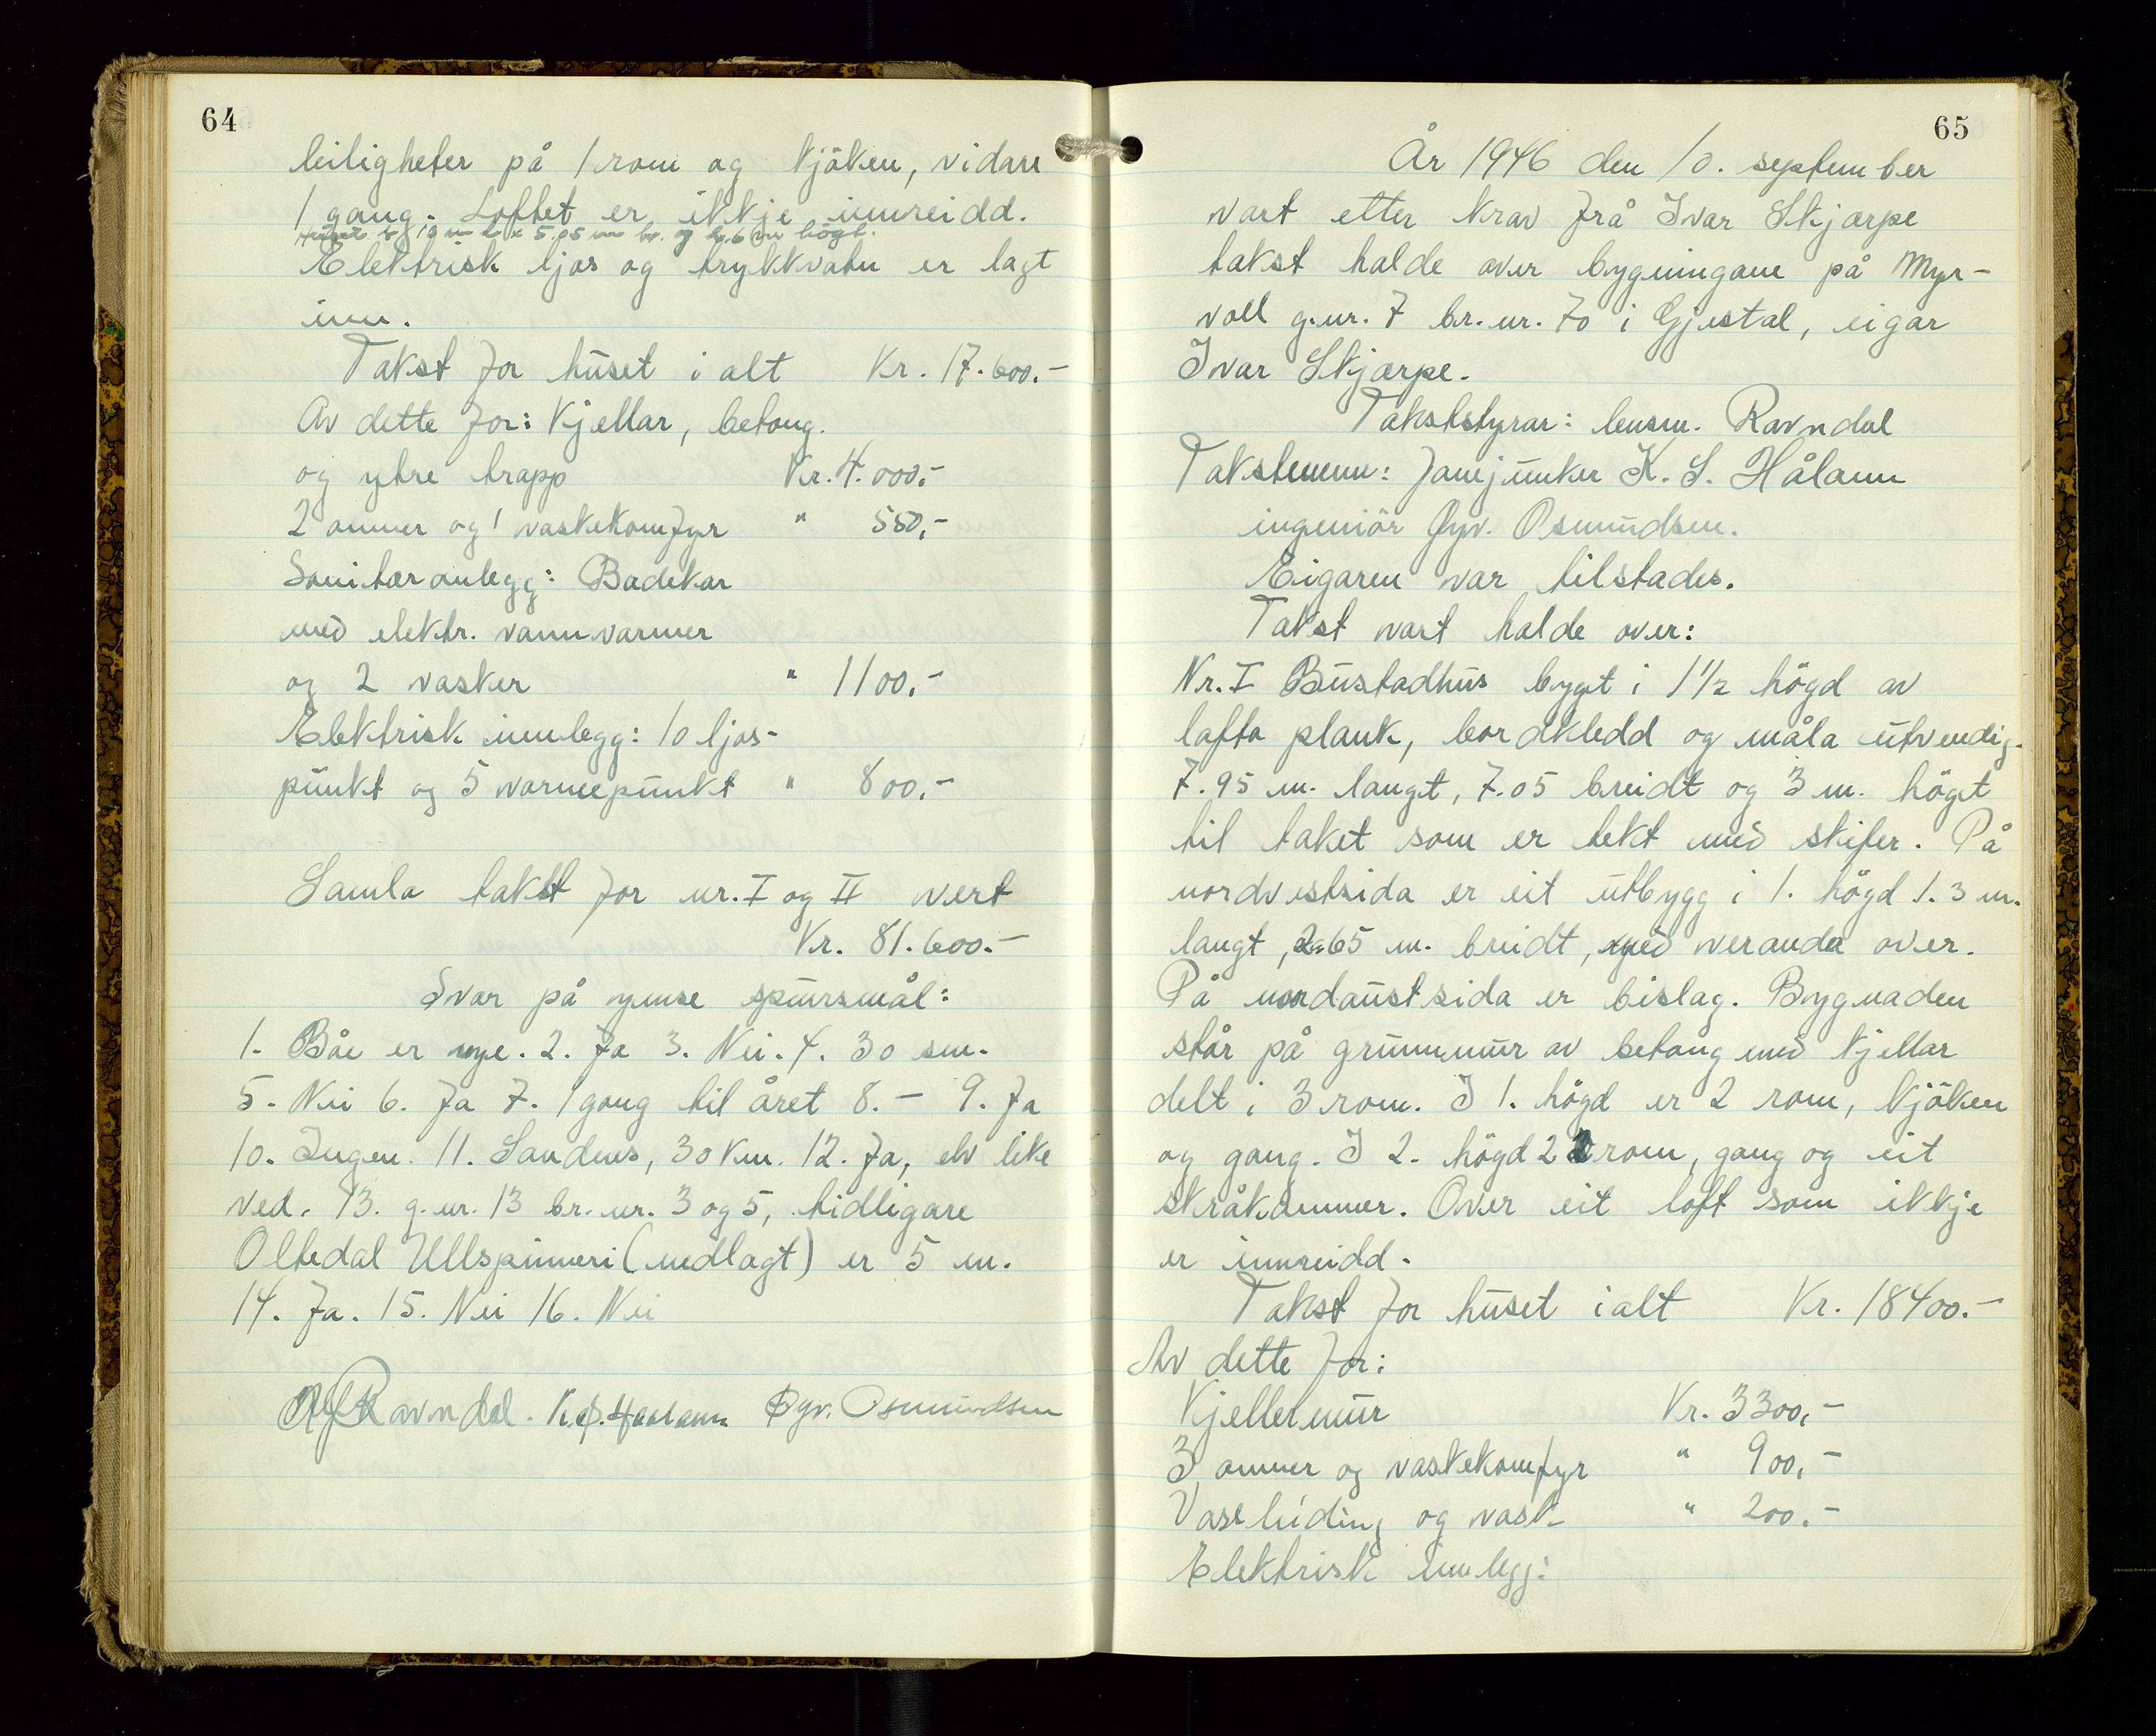 64
leiligheter på 1 rom og kjöken, vidare
1 gang. Loftet er ikkje innreidd.
10 m l x 5.05 m br. og 2.6 m högt.
Elektrisk ljos og trykkvatn er lagt
inn.
Takst for huset i alt Kr. 17.600.-
Av dette for: Kjellar, betong.
og ytre trapp Kr. 4.000.-
2 omner og 1 vaskekomfyr " 550,-
Sanitæranlegg: Badekar
med elektr. vannvarmer
og 2 vasker " 1100,-
Elektrisk innlegg: 10 ljos-
punkt og 5 varmepunkt " 800,-
Samla takst for nr. I og II vert
Kr. 81.600.-
Svar på ymse spursmål:
1. Båe er nye. 2. Ja 3. Nei. 4. 30 sm.
5. Nei 6. Ja 7. 1 gong til året 8. - 9. Ja
10. Ingen. 11. Sandnes, 30 km. 12. Ja, elv like
ved. 13. g.nr. 13 br.nr. 3 og 5, tidligare
Oltedal Ullspinneri (nedlagt) er 5 m.
14. Ja. 15. Nei 16. Nei
Ravndal. K. S. Haaland Øyv. Osmundsen
65
År 1946 den 10. september
vart etter krav frå Ivar Skjærpe
takst halde over bygningane på Myr-
voll g.nr. 7 br.nr. 70 i Gjestal, eigar
Ivar Skjærpe.
Takststyrar: lensm. Ravndal
Takstmenn: fanejunker K. S. Håland
ingeniör Øyv. Osmundsen.
Eigaren var tilstades.
Takst vart halde over:
Nr. I Bustadhus bygt i 1 1/2 högd av
lafta plank, bordkledd og måla utvendig.
7.95 m. langt, 7.05 breidt og 3 m. högt
til taket som er tekt med skifer. På
nordvestsida er eit utbygg i 1. högd 1.3 m.
langt, 2.65 m. breidt, med veranda over.
På nordaustsida er bislag. Bygnaden
står på grunnmur av betong med kjellar
delt i 3 rom. I 1. högd er 2 rom, kjöken
og gang. I 2. högd 2 rom, gang og eit
skråkammer. Over eit loft som ikkje
er innreidd.
Takst for huset ialt Kr. 18400.-
Av dette for:
Kjellermur Kr. 3300,-
3 omner og vaskekomfyr " 900,-
Vassleiding og vask " 200.-
Elektrisk innlegg: